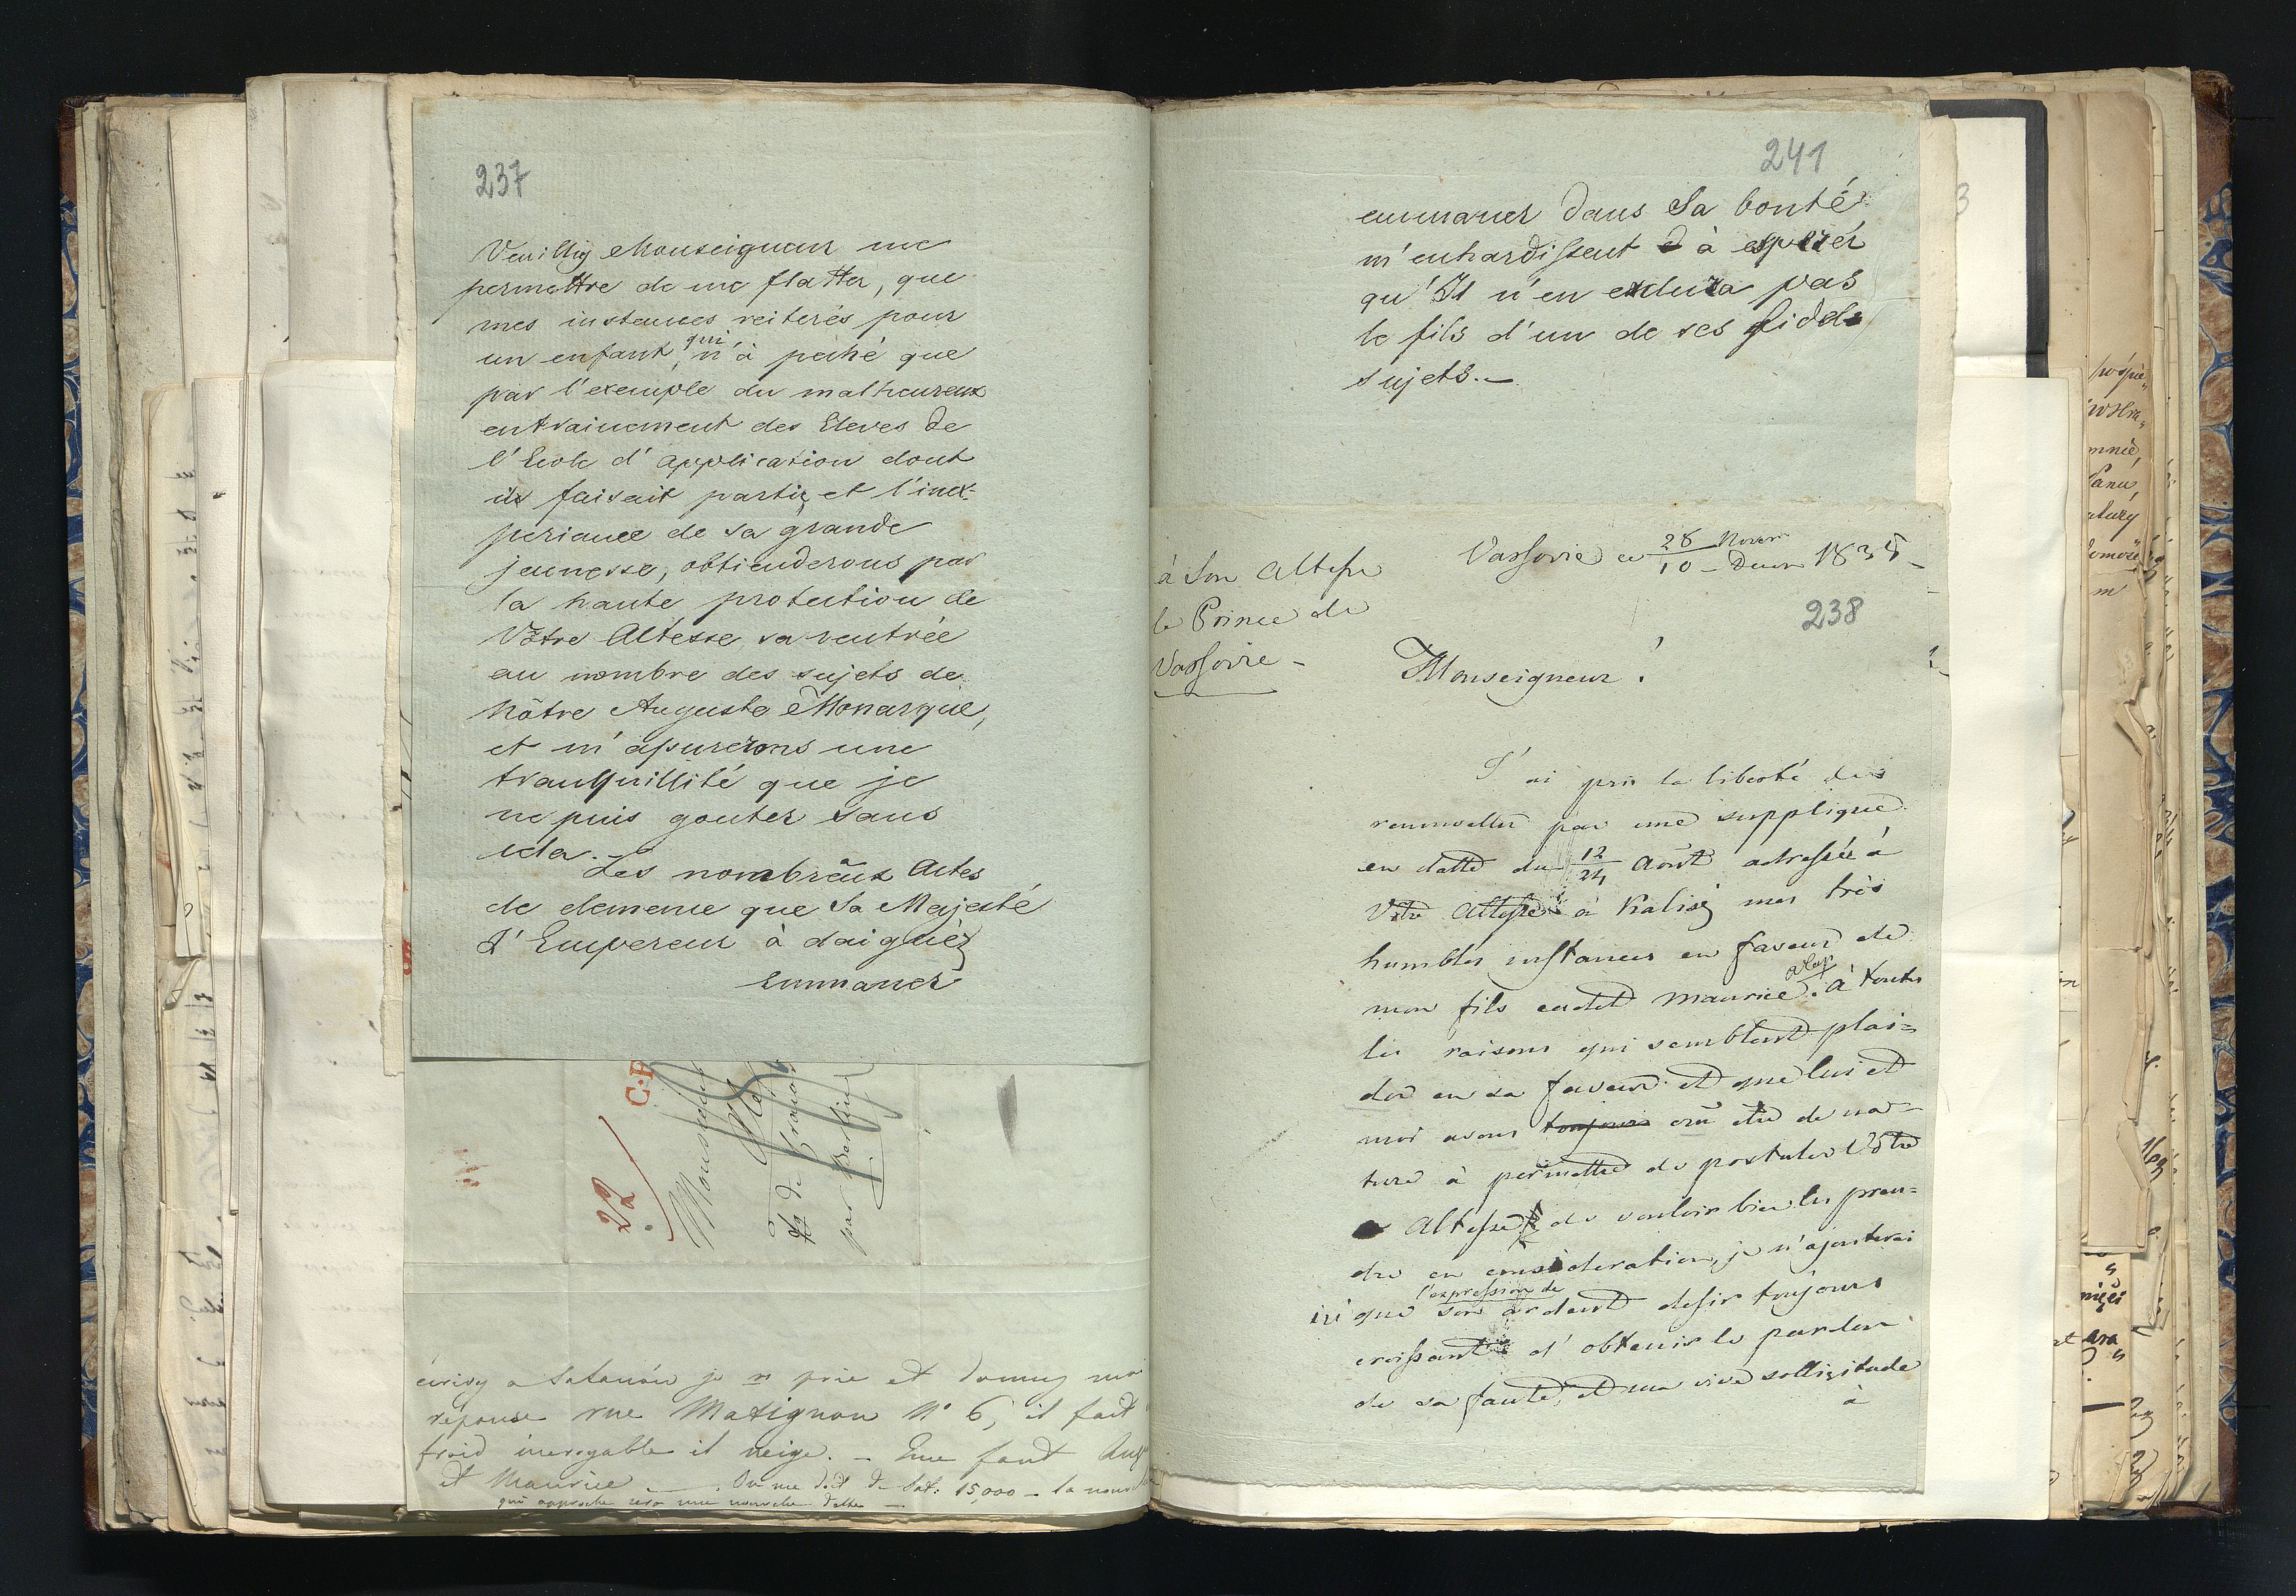 237
Veuilléz Monseigneur me
permettre de me flatter, que
mes instances reiterés pour
un enfant, qui n'à peché que
par l'exemple du malheureux
entrainement des Eleves de
l'Ecole d'application dont
il faisait partie, et l'inex-
periance de sa grande
jeunesse, obtienderons par
la haute protection de
Vôtre Altesse sa rentrée
au nombre des sujets de
Nôtre Auguste Monarque,
et m'assurerons une
tranquillité que je
ne puis gouter sans
cela.-
Les nombreux Actes
de clemence que Sa Majesté
l'Empereur à daignéz
emmaner
C.P
22
Monsieur
de
par Berlin
écrivez a je v prie et donnez moi
réponse rue Matignon N° 6, il fait
froid incroyable il neige. -
et Maurice - On me doit de 15,000 - la
qui approche sera une nouvelle dette -
241
emmaner dans Sa bonté
m'enhardissent à esperér
qu'Il n'en exclura pas
le fils d'un de ses fidels
sujets.-
Varsovie ce 28 Novem / 10 - Decem 1835 -
à Son Altesse
le Prince de
Varsovie -
238
Monseigneur!
J'ai pris la liberté de
renouveller par une supplique
en datte du 12/24 Août adressée à
Vôtre Altesse à Kalisz mes très
humbles instances en faveur de
mon fils cadet Maurice. à toutes
les raisons qui semblent plai=
der en sa faveur et que lui et
moi avons toujours crû être de na-
ture à permettre de postuler Vôtre
Altesse de vouloir bien les pren=
dre en consideration, je n'ajouterai
l'expression de
ici que son ardent desir toujours
croissant d'obtenir le pardon
de sa faute, et ma vive sollicitude
à